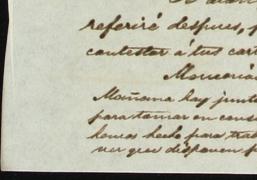 referiré despues, p
contestar á tus cart
Memoria
Mañana hay junta
para tomar en cons
hemos hecho para trab
ver que disponen p